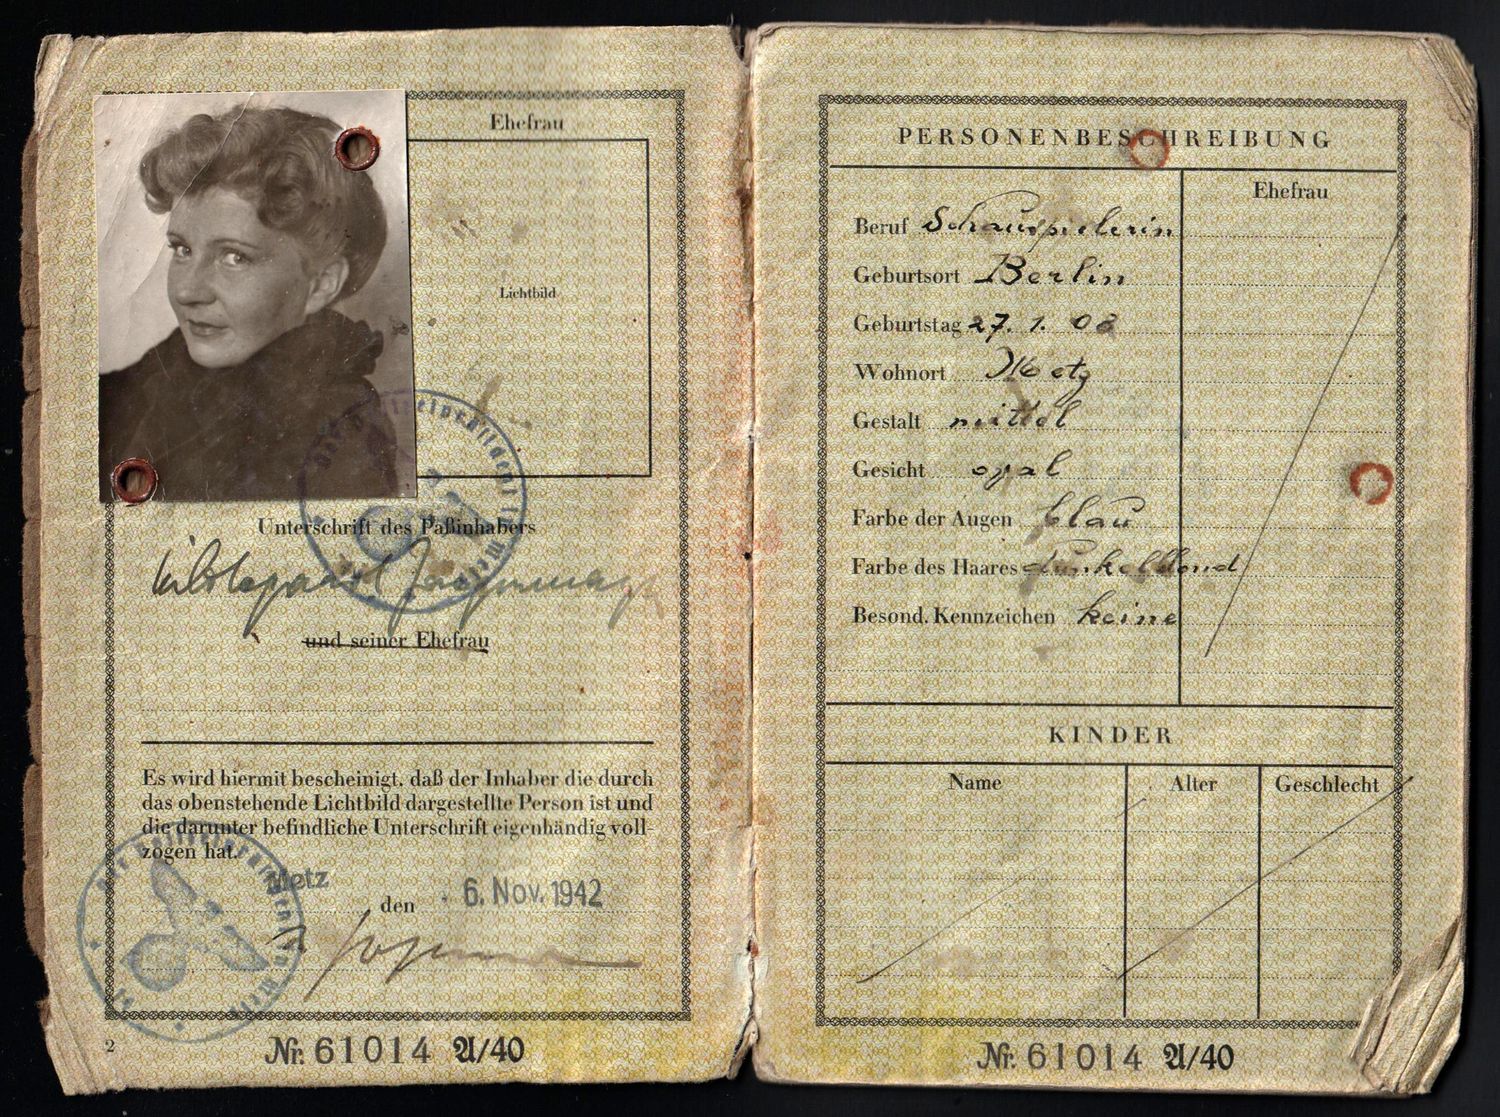 Ehefrau
Lichtbild
Unterschrift des Paßinhabers
Hildegard
und seiner Ehefrau
Es wird hiermit bescheinigt, daß der Inhaber die durch
das obenstehende Lichtbild dargestellte Person ist und
die darunter befindliche Unterschrift eigenhändig voll-
zogen hat.
Metz den - 6. Nov. 1942
2
Nr. 61014 A/40
PERSONENBESCHREIBUNG
Ehefrau
Beruf Schauspielerin
Geburtsort Berlin
Geburtstag 27. 1. 08
Wohnort Metz
Gestalt mittel
Gesicht oval
Farbe der Augen blau
Farbe des Haares dunkelblond
Besond. Kennzeichen keine
KINDER
Name Alter Geschlecht
Nr. 61014 A/40